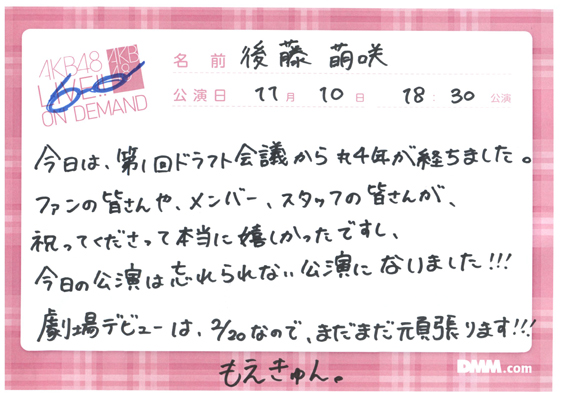 AKB48
LIVE!!
ON DEMAND
名前 後藤 萌咲
公演日 11月 10日 18:30 公演
今日は、第1回ドラフト会議から丸4年が経ちました。
ファンの皆さんや、メンバー、スタッフの皆さんが、
祝ってくださって本当に嬉しかったですし、
今日の公演は忘れられない公演になりました!!!
劇場デビューは、2/20なので、まだまだ頑張ります!!!
もえきゅん。
DMM.com